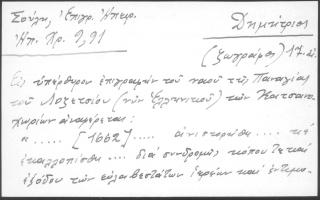 Σούλη, Ἐπιγρ. Ἠπείρ.
Ἠπ. Χρ. 9, 91
Δημήτριος
(ζωγράφος) 17. αἰ.
Εἰς ὑπέρθυρον ἐπιγραφὴν τοῦ ναοῦ τῆς Παναγίας
τοῦ Λοζετσίου (νῦν Ἑλληνικοῦ) τῶν Κατσανο-
χωρίων ἀναφέρεται:
« ..... [1662] ..... ἀνιστορήθη .... κὲ
ἐκαλλοπίσθη .... διὰ συνδρομῆς κόπου τὲ καὶ
ἐξόδου τῶν εὐλαβεστάτων ἱερέων καὶ ἐντίμο-